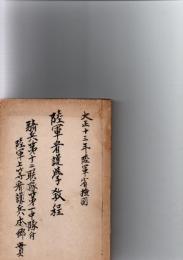 大正十三年陸軍省検閲
陸軍看護学教程
騎兵第十二聯隊第一中隊付
陸軍上等看護兵本郷